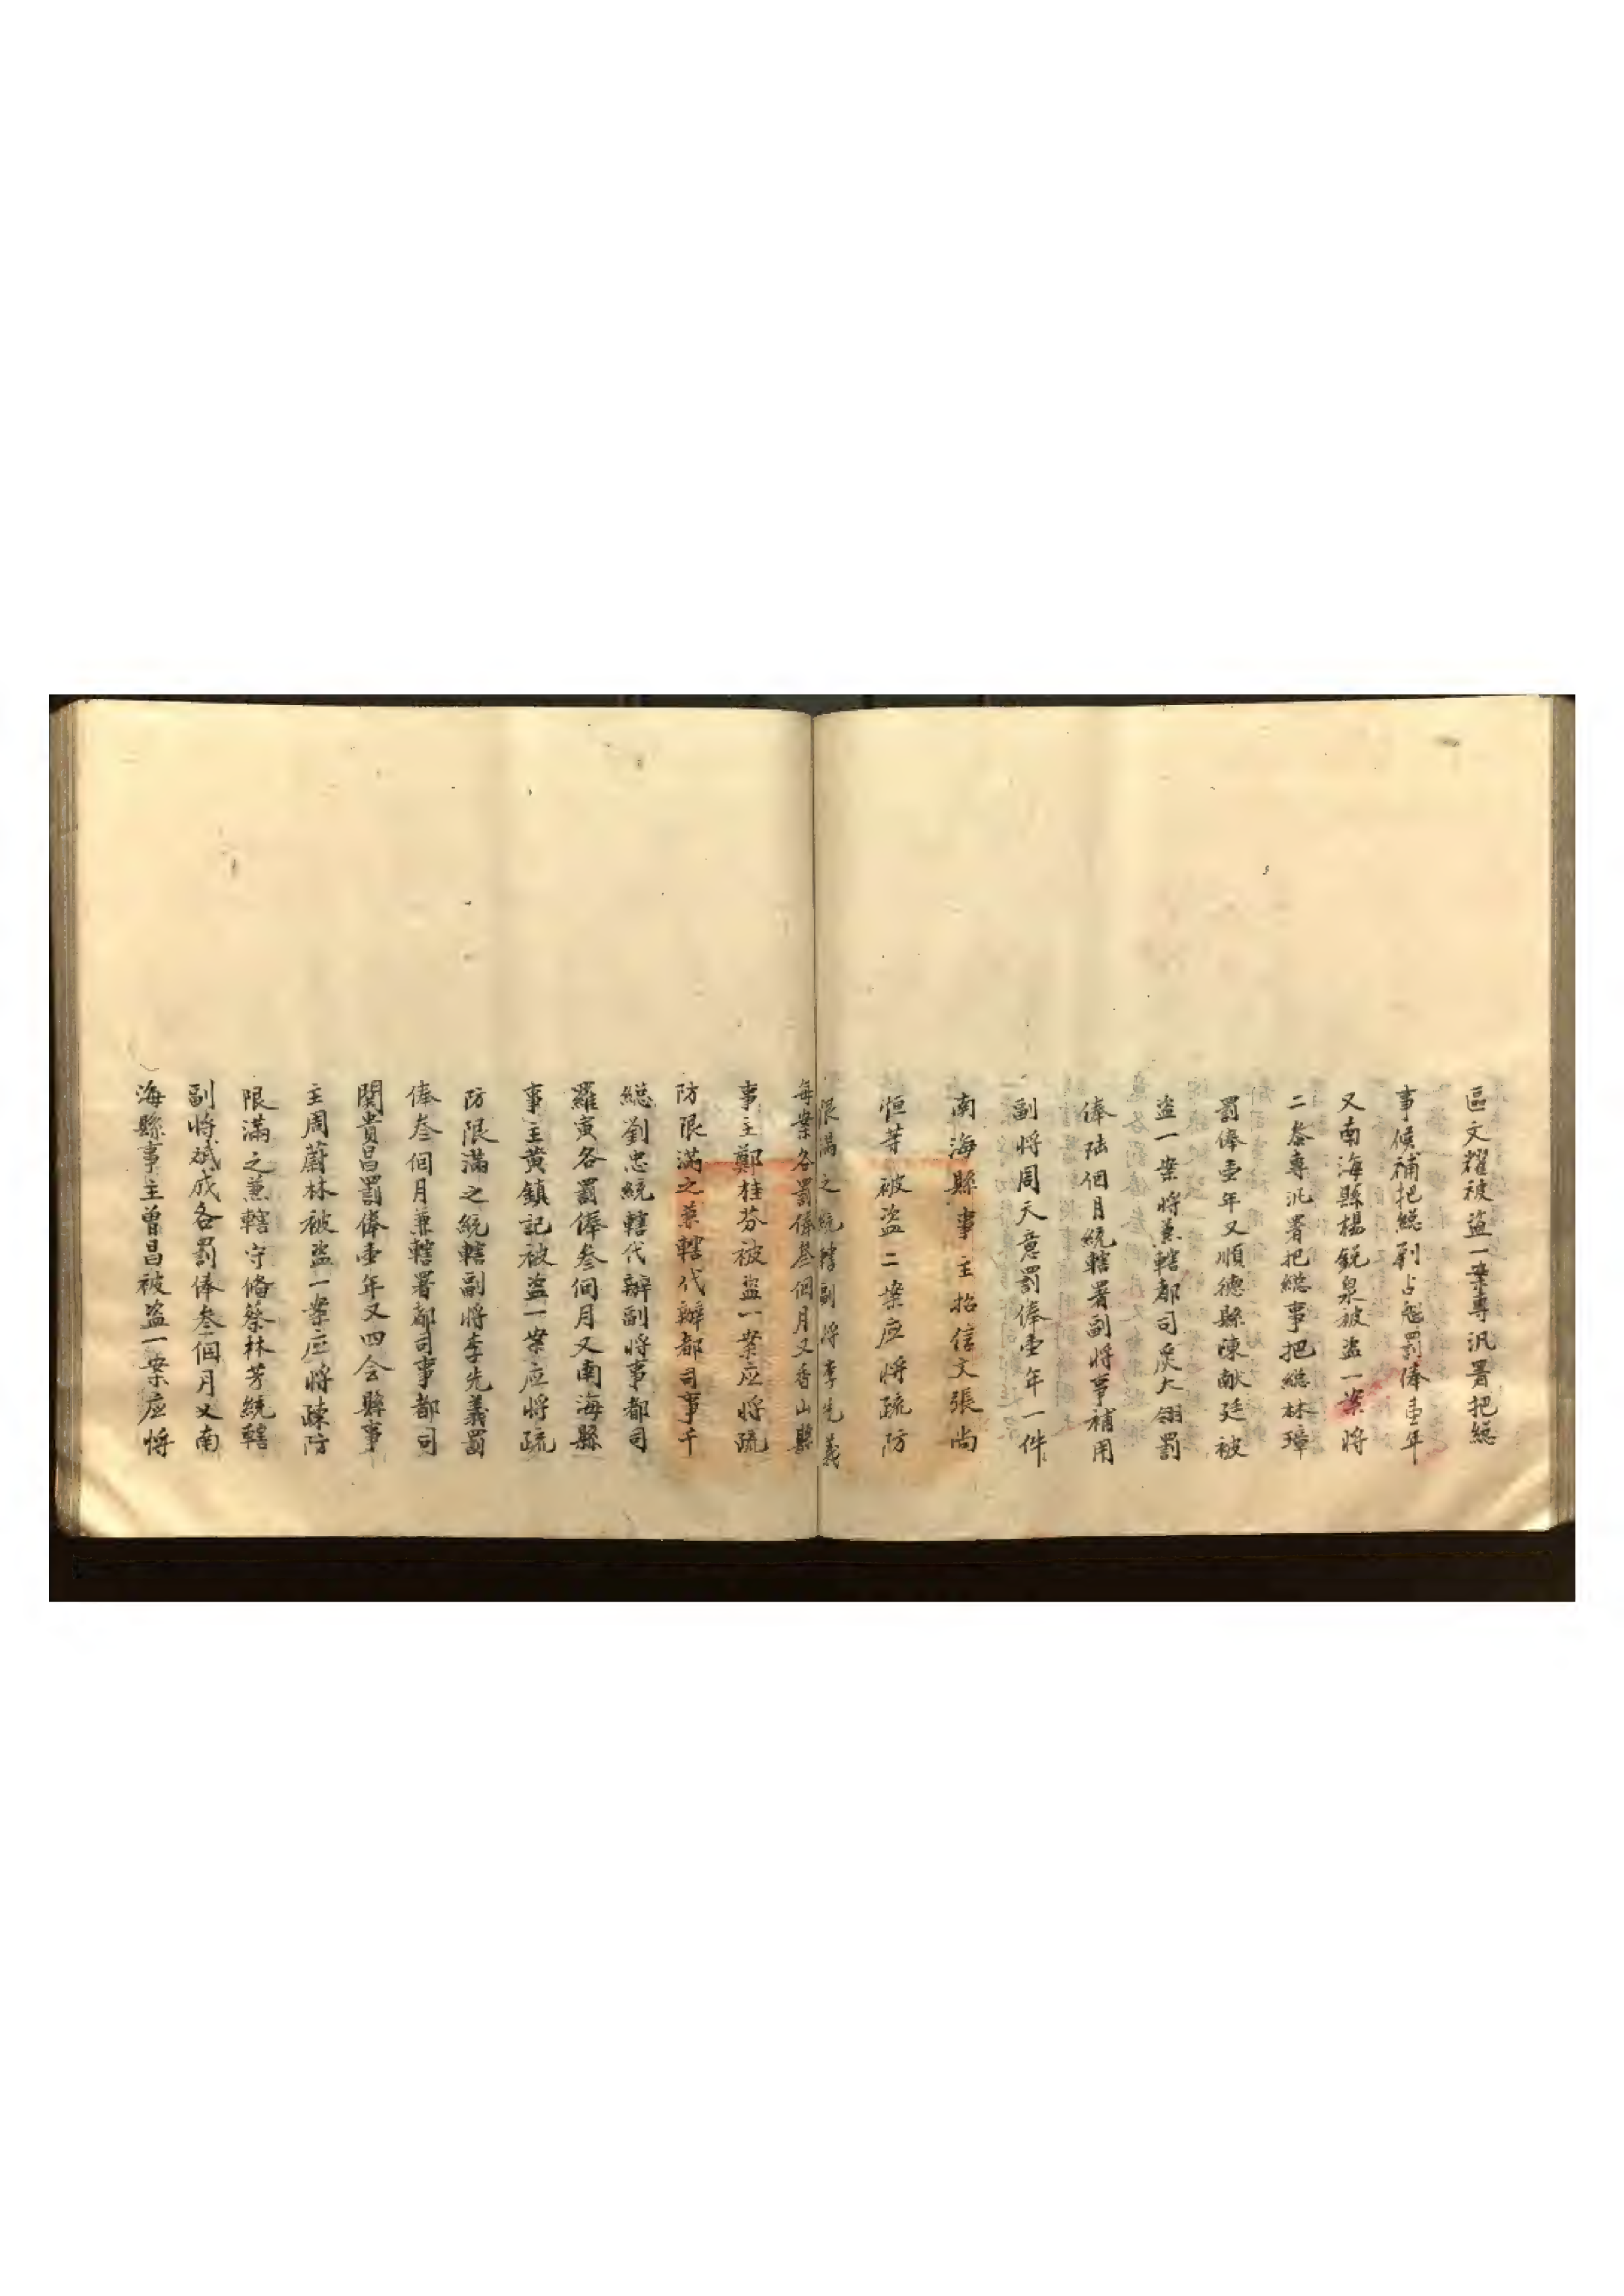 區文耀被盜一案專汛署把総
事候補把総劉占魁罰俸壹年
又南海縣楊鋭泉被盜一案將
二叅專汛署把総事把総林璋
罰俸壹年又順德縣陳献廷被
盜一案將兼轄都司吳大翎罰
俸陆個月統轄署副將事補用
副將周天意罰俸壹年一件
南海縣事主招信文張尚
恒等被盜二案应將疏防
限滿之統轄副將李先義
每案各罰俸叁個月又香山縣
事主鄭桂芬被盜一案应將疏
防限滿之兼轄代辦都司事千
総劉忠統轄代辦副將事都司
羅寅各罰俸叁個月又南海縣
事主黄鎮記被盜一案应將疏
防限滿之統轄副將李先義罰
俸叁個月兼轄署都司事都司
関貴昌罰俸壹年又四会縣事
主周蔚林被盜一案应將疎防
限滿之兼轄守俻蔡林芳統轄
副將斌成各罰俸叁個月又南
海縣事主曾昌被盜一案应將